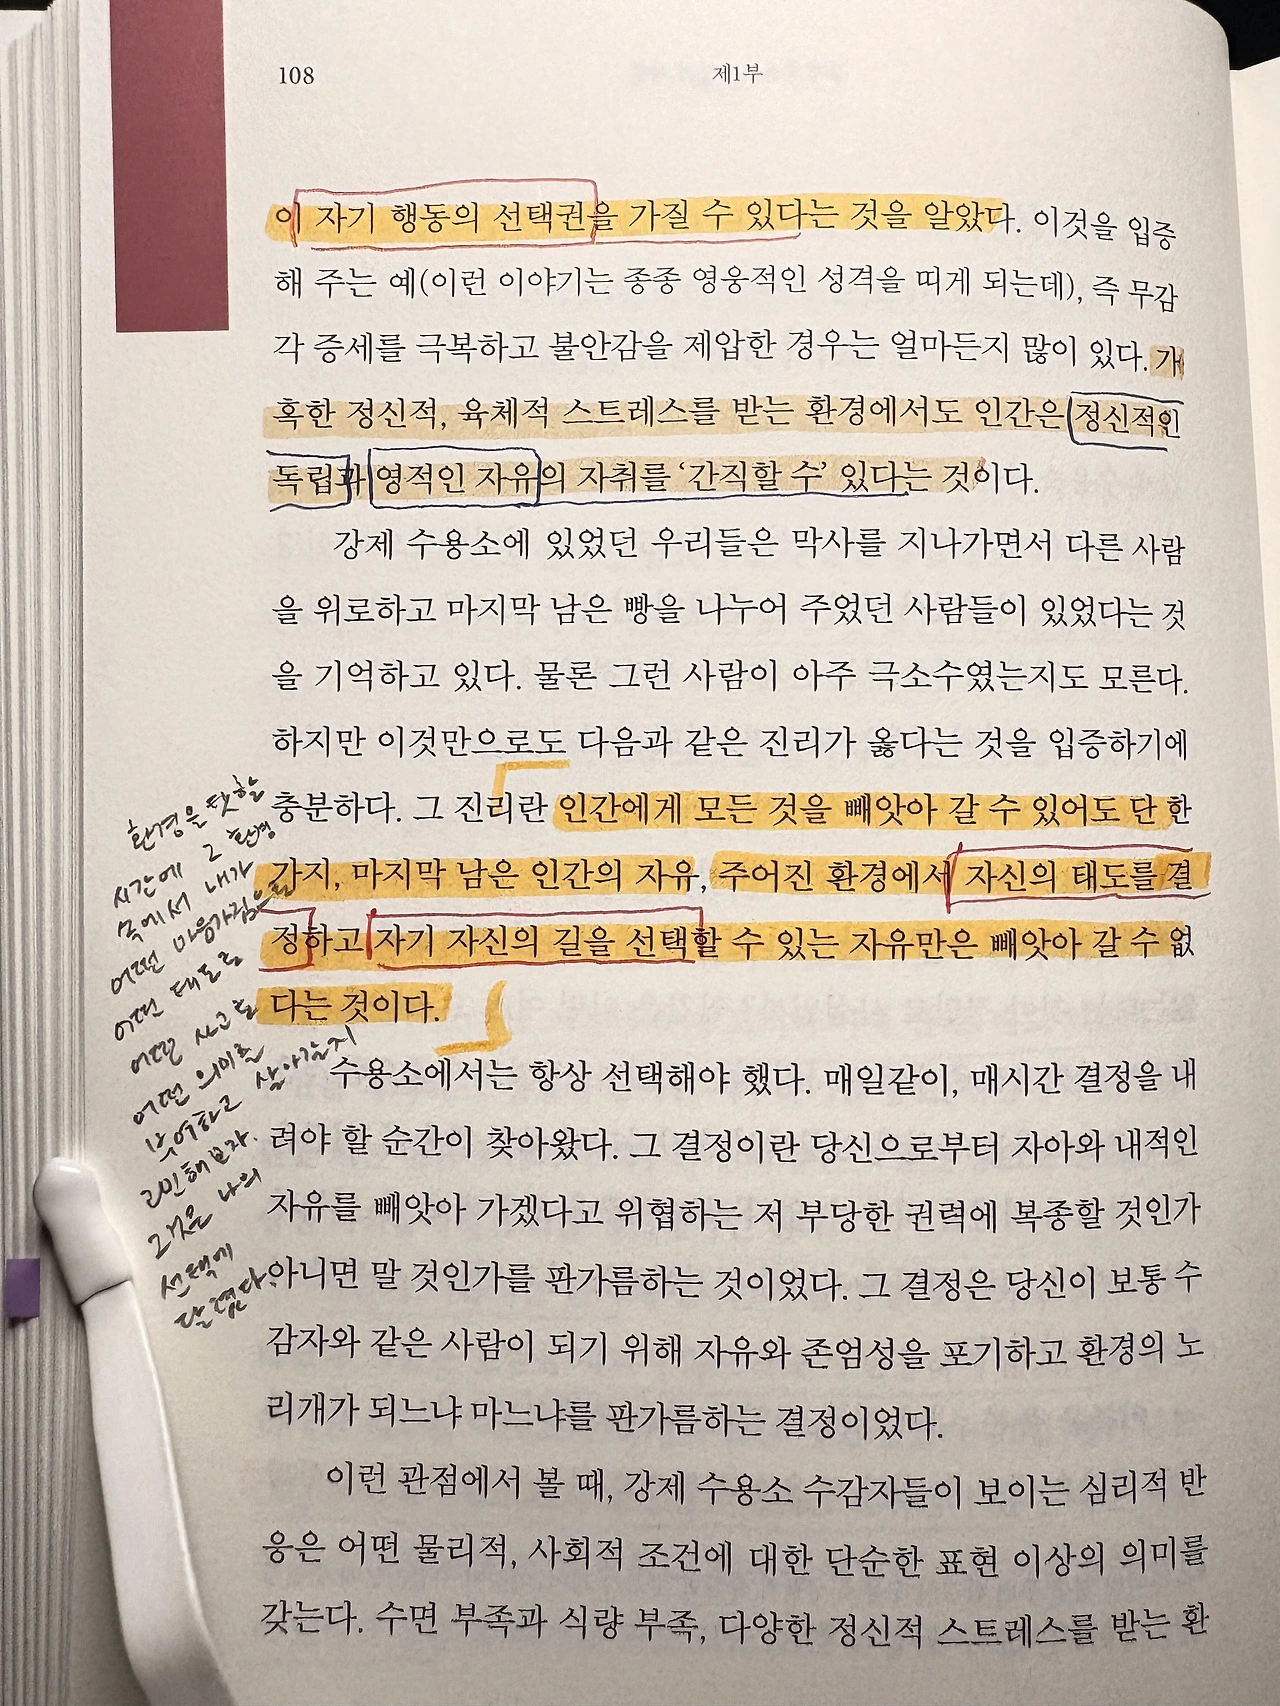 108
제1부
이 자기 행동의 선택권을 가질 수 있다는 것을 알았다. 이것을 입증
해 주는 예(이런 이야기는 종종 영웅적인 성격을 띠게 되는데), 즉 무감
각 증세를 극복하고 불안감을 제압한 경우는 얼마든지 많이 있다. 가
혹한 정신적, 육체적 스트레스를 받는 환경에서도 인간은 정신적인
독립과 영적인 자유의 자취를 ‘간직할 수’ 있다는 것이다.
강제 수용소에 있었던 우리들은 막사를 지나가면서 다른 사람
을 위로하고 마지막 남은 빵을 나누어 주었던 사람들이 있었다는 것
을 기억하고 있다. 물론 그런 사람이 아주 극소수였는지도 모른다.
하지만 이것만으로도 다음과 같은 진리가 옳다는 것을 입증하기에
충분하다. 그 진리란 인간에게 모든 것을 빼앗아 갈 수 있어도 단 한
가지, 마지막 남은 인간의 자유, 주어진 환경에서 자신의 태도를 결
정하고 자기 자신의 길을 선택할 수 있는 자유만은 빼앗아 갈 수 없
다는 것이다.
수용소에서는 항상 선택해야 했다. 매일같이, 매시간 결정을 내
려야 할 순간이 찾아왔다. 그 결정이란 당신으로부터 자아와 내적인
자유를 빼앗아 가겠다고 위협하는 저 부당한 권력에 복종할 것인가
아니면 말 것인가를 판가름하는 것이었다. 그 결정은 당신이 보통 수
감자와 같은 사람이 되기 위해 자유와 존엄성을 포기하고 환경의 노
리개가 되느냐 마느냐를 판가름하는 결정이었다.
이런 관점에서 볼 때, 강제 수용소 수감자들이 보이는 심리적 반
응은 어떤 물리적, 사회적 조건에 대한 단순한 표현 이상의 의미를
갖는다. 수면 부족과 식량 부족, 다양한 정신적 스트레스를 받는 환
환경을 탓할
시간에 그 환경
속에서 내가
어떤 마음가짐으로
어떤 태도로
어떤 사고로
어떤 의미를
부여하고 살아갈지
고민해보자.
그것은 나의
선택에
달렸다.